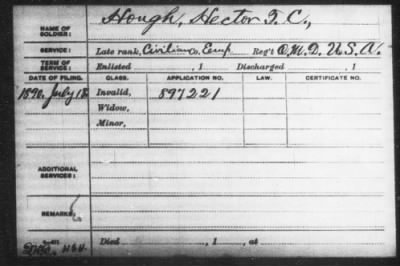 NAME OF SOLDIER: Hough, Hector T. C.,
SERVICE: Late rank, Civilian Co. Emp Reg't Q.M.D. U.S.A.
TERM OF SERVICE: Enlisted , 1 Discharged , 1
DATE OF FILING. CLASS. APPLICATION NO. LAW. CERTIFICATE NO.
1890, July 18 Invalid, 897221
Widow,
Minor,
ADDITIONAL SERVICES:
REMARKS:
Died , 1 , at